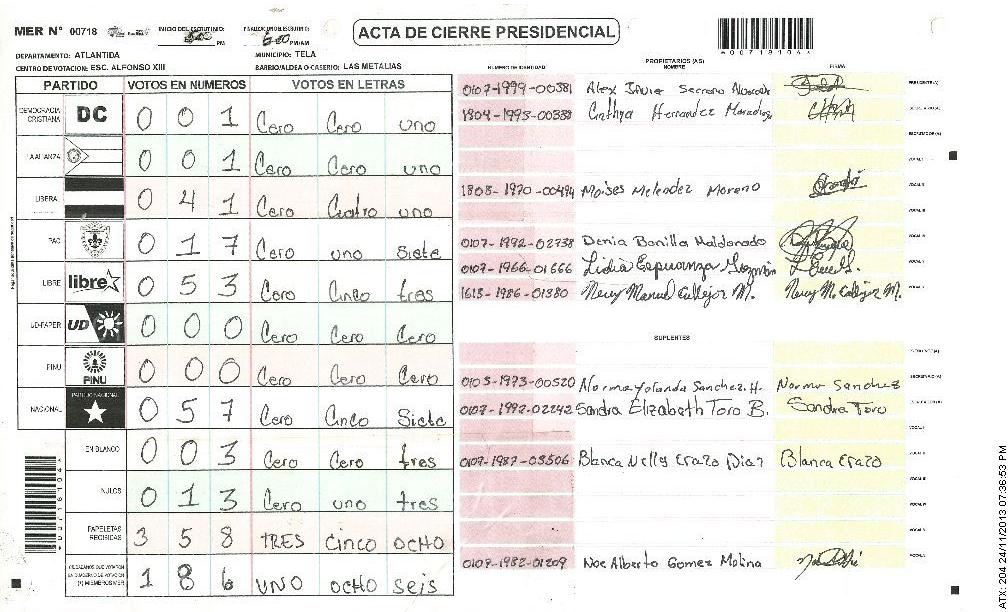 MER N° 00718 INICIO DEL ESCRUTINIO: PM FINALIZACION DEL ESCRUTINIO: PM/AM
ACTA DE CIERRE PRESIDENCIAL
*00718104*
DEPARTAMENTO: ATLANTIDA MUNICIPIO: TELA
CENTRO DE VOTACION: ESC. ALFONSO XIII BARRIO/ALDEA O CASERIO: LAS METALIAS
PARTIDO VOTOS EN NUMEROS VOTOS EN LETRAS
DEMOCRACIA CRISTIANA DC 0 0 1 Cero Cero uno
LA ALIANZA 0 0 1 Cero Cero uno
LIBERAL 0 4 1 Cero Cuatro uno
PAC 0 1 7 Cero uno Siete
LIBRE libre 0 5 3 Cero Cinco tres
UD-FAPER UD 0 0 0 Cero Cero Cero
PINU PINU 0 0 0 Cero Cero Cero
NACIONAL PARTIDO NACIONAL 0 5 7 Cero Cinco Siete
EN BLANCO 0 0 3 Cero Cero tres
NULOS 0 1 3 Cero uno tres
PAPELETAS RECIBIDAS 3 5 8 TRES CINCO OCHO
CIUDADANOS QUE VOTARON EN CUADERNO DE VOTACION (+) MIEMBROS MER 1 8 6 UNO OCHO SEIS
PROPIETARIOS (AS)
NUMERO DE IDENTIDAD NOMBRE FIRMA
0107-1999-00381 Alex Serrano PRESIDENTE(A)
1804-1993-00339 Cinthya Hernandez SECRETARIO(A)
ESCRUTADOR (A)
VOCAL I
1808-1970-00494 Moises Melendez Moreno VOCAL II
VOCAL III
0107-1992-02738 Denia Bonilla Maldonado VOCAL IV
0107-1966-01666 Lidia Esperanza Guzmán VOCAL V
1613-1986-01380 Nery Manuel Callejas M. Nery M. Callejas M.
SUPLENTES
PRESIDENTE(A)
0105-1973-00520 Norma Yolanda Sanchez. H. Norma Sanchez SECRETARIO(A)
0107-1992-02242 Sandra Elizabeth Toro B. Sandra Toro ESCRUTADOR (A)
VOCAL I
0107-1987-03506 Blanca Nelly Erazo Diaz Blanca Erazo VOCAL II
VOCAL III
VOCAL IV
VOCAL V
0107-1982-01209 Noe Alberto Gomez Molina
ATX: 204 24/11/2013 07:36:53 PM